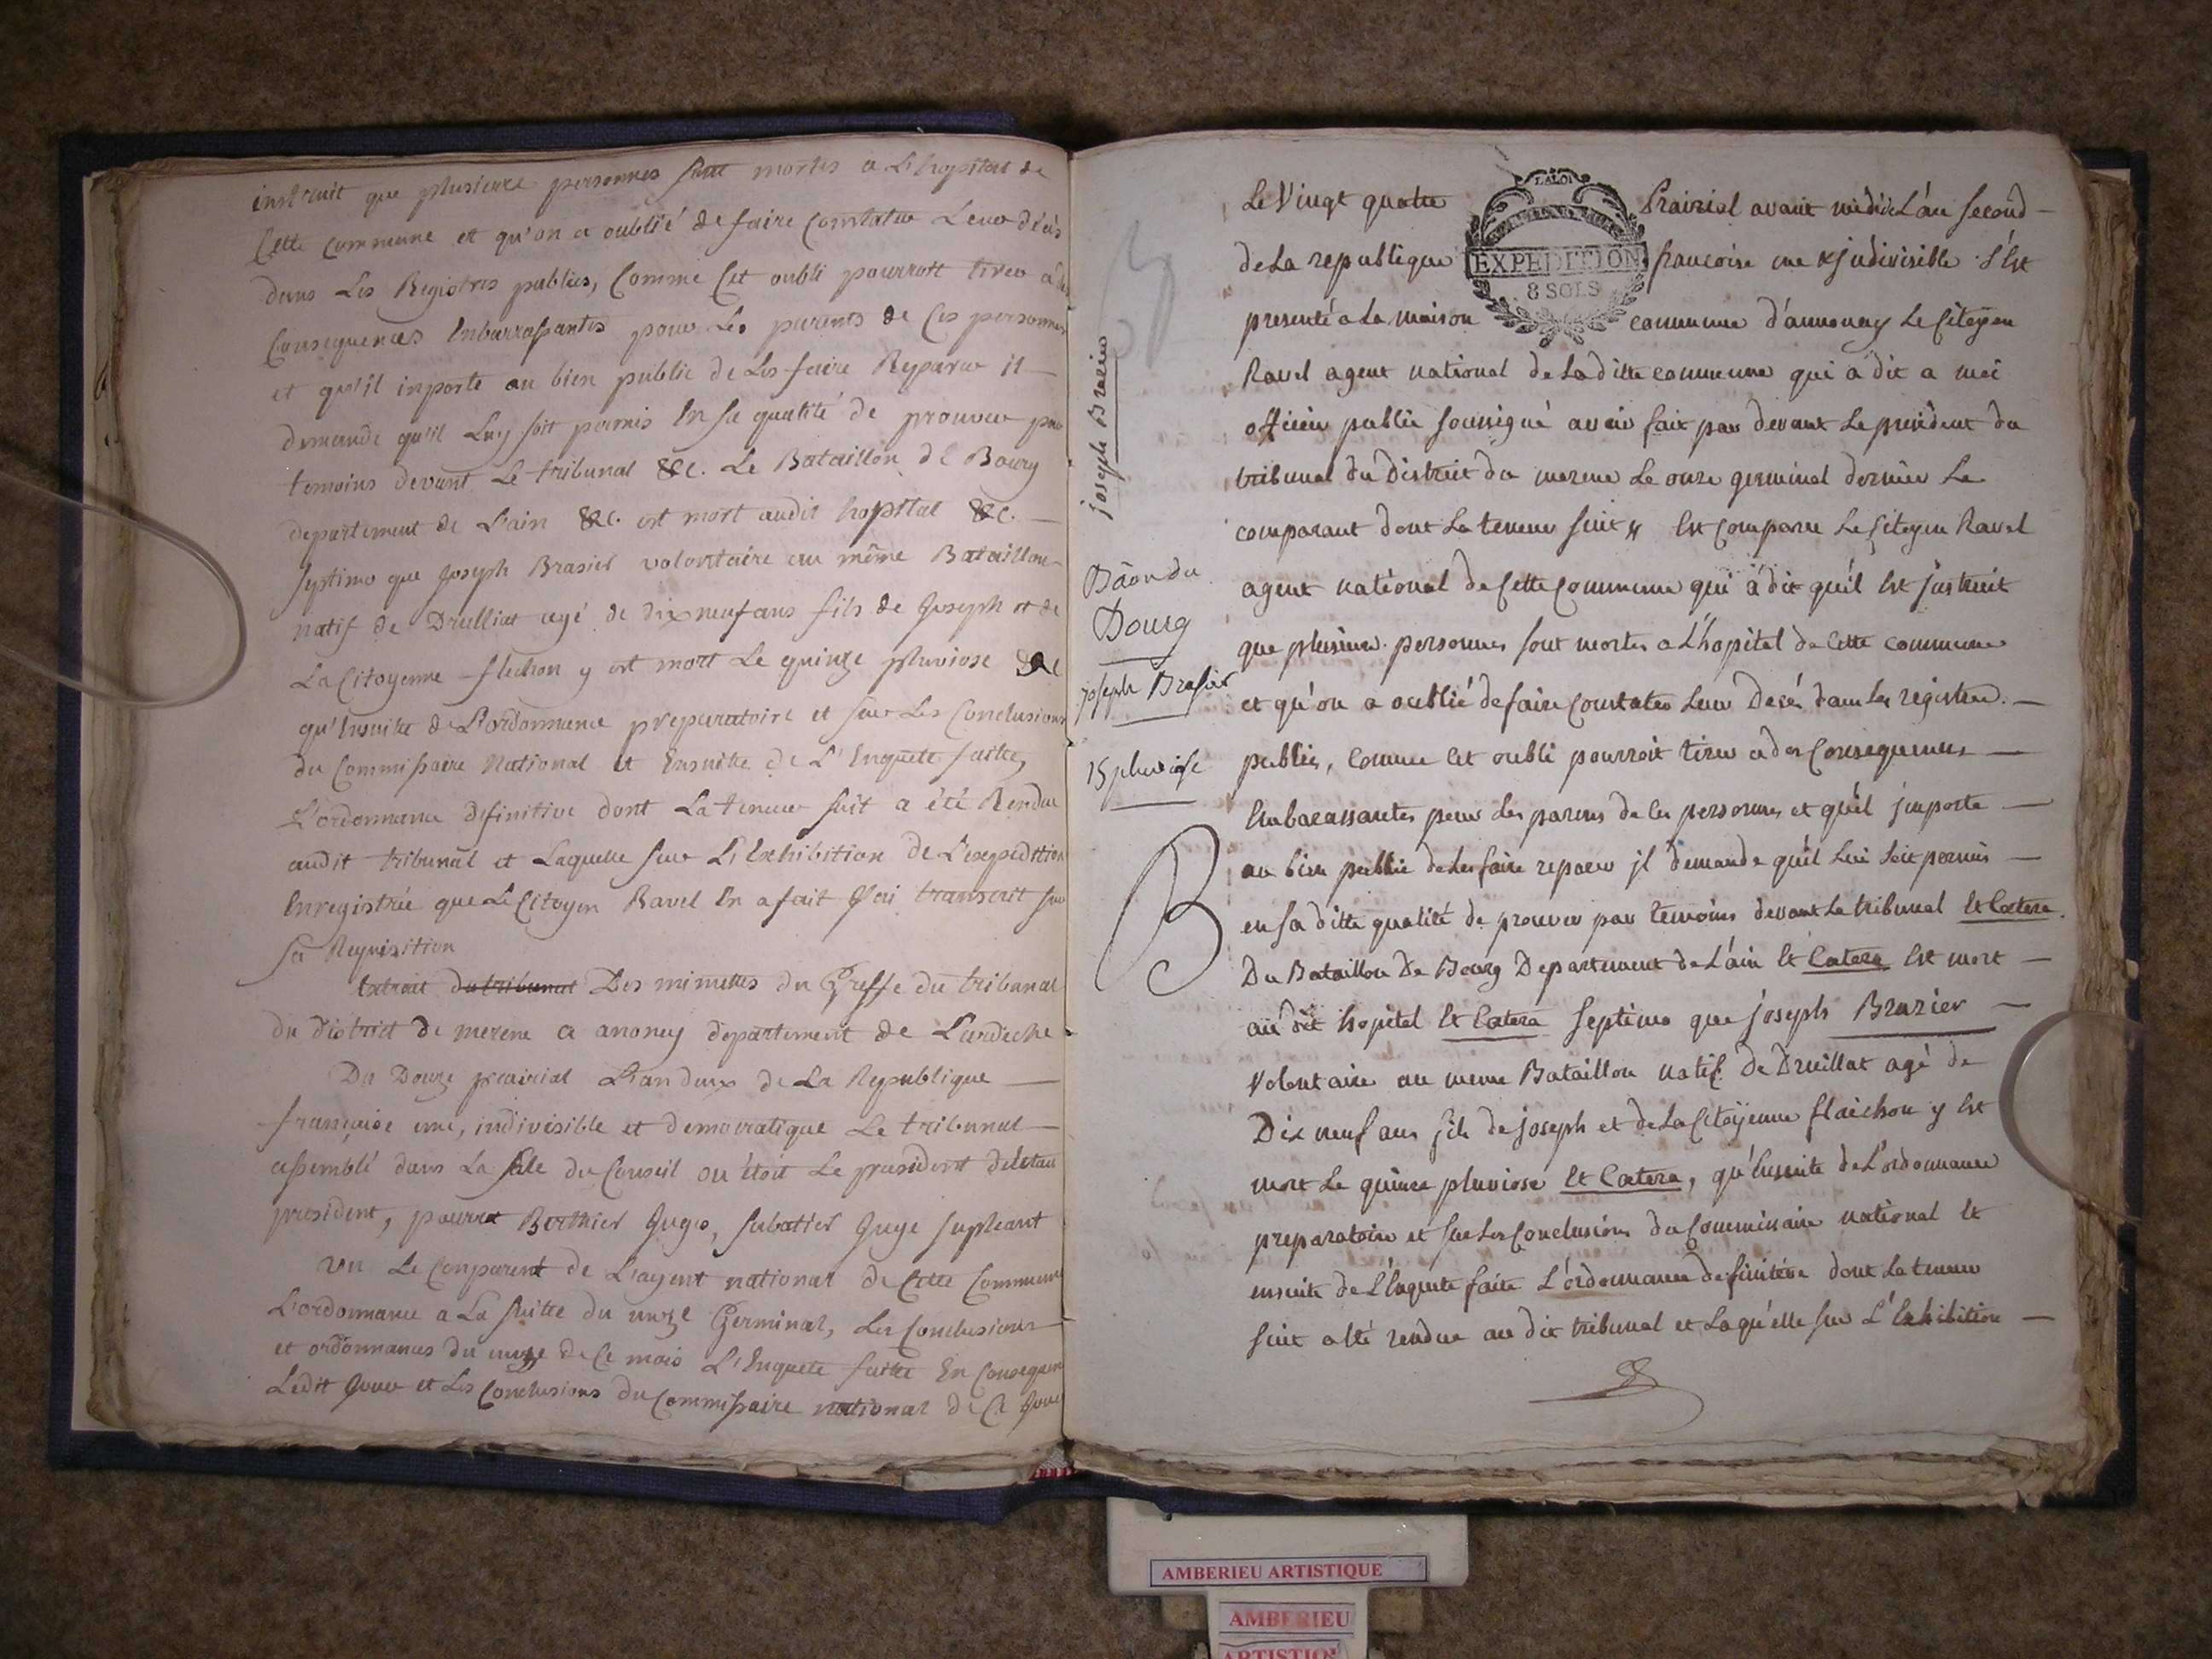 instruit que plusieurs personnes sont mortes a L'hopital de
Cette commune et qu'on a oublié de faire Constater Leur décès
dans Les Registres publics, Comme Cet oubli pourroit tirer a des
Consequences Enbarrassantes pour Les parents de Ces personnes
et qu'il inporte au bien public de Les faire Reparer il
demande qu'il Luy soit permis En sa qualité de prouver par
temoins devant Le tribunal &c. Le Bataillon de Bourg
departement de L'ain &c. est mort audit hopital &c.
septimo que Joseph Brasier volontaire au même Bataillon
natif de Druilliat agé de dix neuf ans fils de Joseph et de
La Citoyenne flechon y est mort Le quinze pluviose &c
qu'Ensuite de L'ordonnance preparatoire et sur Les Conclusions
du Commissaire National et Ensuitte de L'Enquete faitte,
L'ordonnance definitive dont La teneur suit a été Rendue
audit tribunal et Laquelle sur L'Exhibition de L'expedition
Enregistrée que Le Citoyen Ravel En a fait J'ai transcrit sur
sa Requisition
Extrait du tribunal Des minuttes du Greffe du tribunal
du district de mezene a anonay departement de L'ardeche
Du Douze prairial L'an deux de La Republique
française une, indivisible et democratique Le tribunal
assemblé dans La sale du Conseil ou étoit Le president deletau
president, pourrat Berthier Juges, sabatier Juge supleant
Vu Le Conparent de L'agent national de Cette Commune
L'ordonnance a La suitte du unze Germinal, Les Conclusions
et ordonnances du unze de Ce mois L'Enquete faitte En Consequence
Ledit Jour et Les Conclusions du Commissaire national de Ce Jour
joseph Brasier
Bâon du
Bourg
joseph Brasier
15 pluviose
Le Vingt quatre Prairial avant midi de L'an second
LA LOI
EXPEDITION
8 SOLS
de La republique francoise une & jndivisible s'Est
presenté a La maison commune d'annonay Le Citoyen
Ravel agent national de La ditte commune qui a dit a moi
officier public soussigné avoir fait par devant Le president du
tribunal du District du mezene Le onze germinal dernier Le
comparant dont La teneur suit Est Comparu Le Citoyen Ravel
agent national de Cette Commune qui a dit qu'il Est jnstruit
que plusieurs personnes sont mortes a L'hopital de Cette commune
et qu'on a oublié de faire Constater Leur Decés dans Les registres
publics, Comme Cet oubli pourroit tirer a des Consequences
Embarassantes pour Les parens de Ces personnes et qu'il jmporte
au bien public de Les faire reparer jl demande qu'il Lui soit permis
en sa ditte qualité de prouver par temoins devant Le tribunal Et Cœtera.
Du Bataillon De Bourg Departement de L'ain Et Cœtera Est mort
au dit hopital Et Cœtera septimo que joseph Brazier
Volontaire au meme Bataillon natif De Druillat agé de
Dix neuf ans fils de joseph et de La Citoÿenne flaichon y Est
mort Le quinze pluviose Et Cœtera, qu'Ensuite de L'ordonnance
preparatoire et sur Les Conclusions du Commissaire national Et
ensuite de L'Enquete faite L'ordonnance definitive dont La teneur
suit a Eté rendue au dit tribunal et Laquelle sur L'Exhibition
AMBERIEU ARTISTIQUE
AMBERIEU
ARTISTIQUE